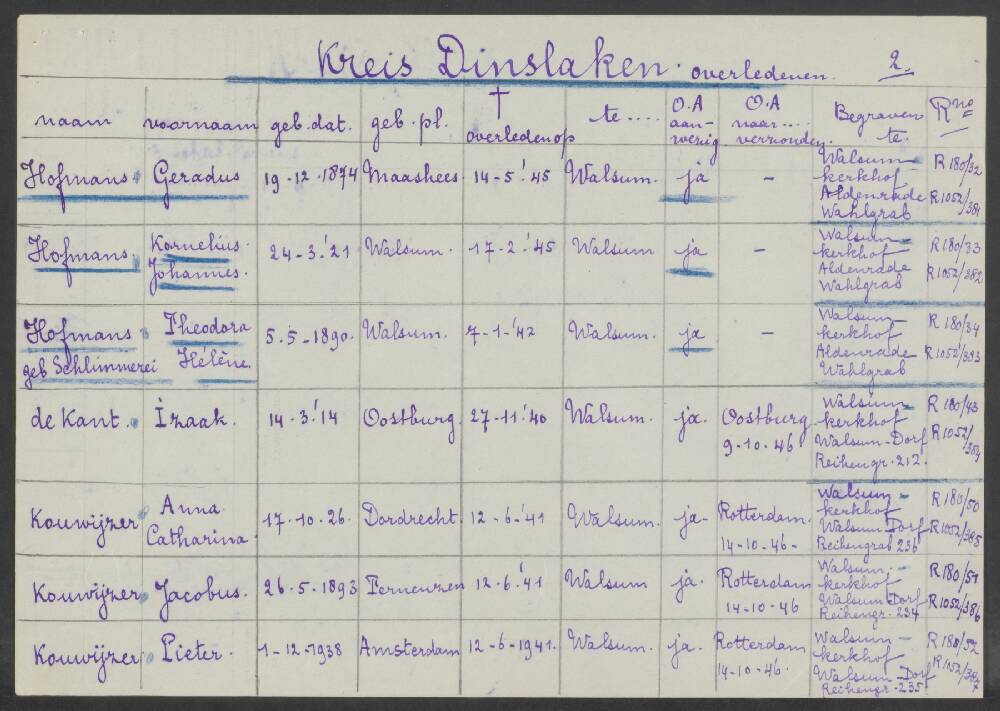 Kreis Dinslaken. overledenen. 2.
naam voornaam geb. dat. geb. pl. † overleden op te .... O.A aan-wezig O.A naar .... verzonden. Begraven te R no
Hofmans. Geradus 19-12-1874 Maashees. 14-5-'45 Walsum. ja - Walsum- R 180/32
kerkhof
Aldenrade R1052/381
Wahlgrab
Hofmans. Kornelius. 24-3-'21 Walsum. 17-2-'45 Walsum ja - Walsum- R 180/33
Johannes. kerkhof
Aldenrade R1052/382
Wahlgrab
Hofmans Theodora 5.5-1890. Walsum. 7-1-'42 Walsum. ja - Walsum- R 180/34
geb Schlimmerei Hélène. kerkhof
Aldenrade R1052/383
Wahlgrab
de Kant. Izaak. 14-3-'14 Oostburg. 27-11-'40 Walsum. ja. Oostburg Walsum- R 180/43
9-10-46. kerkhof
Walsum-Dorf R1052/384
Reihengr. 212.
Kouwijzer Anna 17-10-26. Dordrecht. 12-6-'41 Walsum. ja- Rotterdam. Walsum- R 180/50
Catharina. 14-10-46- kerkhof
Walsum-Dorf R1052/385
Reihengrab 236
Kouwijzer Jacobus. 26-5-1893 Terneuzen 12-6-'41 Walsum ja. Rotterdam Walsum- R 180/51
14-10-46 kerkhof
Walsum Dorf R1052/386
Reihengr. 234
Kouwijzer Pieter. 1-12-1938 Amsterdam 12-6-1941. Walsum. ja. Rotterdam Walsum- R 180/52
14-10-46. kerkhof
Walsum-Dorf R1052/387
Reihengr. 235